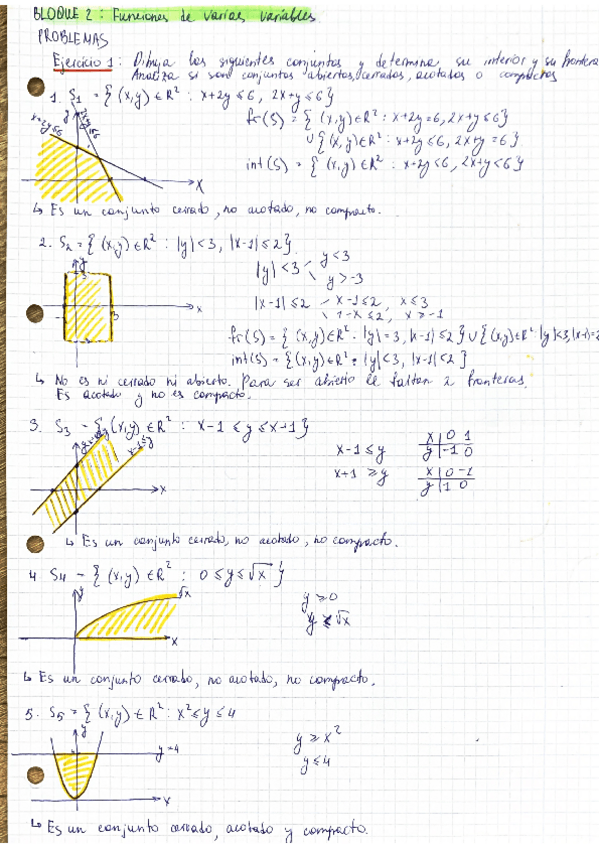 BLOQUE 2: Funciones de varias variables
PROBLEMAS
Ejercicio 1: Dibuja los siguientes conjuntos y determina su interior y su frontera
Analiza si son conjuntos abiertos, cerrados, acotados o compactos
1. S₁ = { (x,y) ∈ R² : x+2y ≤ 6, 2x+y ≤ 6}
fr(S) = { (x,y) ∈ R² : x+2y = 6, 2x+y ≤ 6}
∪ { (x,y) ∈ R² : x+2y ≤ 6, 2x+y = 6}
int(S) = { (x,y) ∈ R² : x+2y < 6, 2x+y < 6}
x+2y≤6
y
X
↳ Es un conjunto cerrado, no acotado, no compacto.
2. S₂ = { (x,y) ∈ R² : |y| < 3, |x-1| ≤ 2}
|y| < 3
y < 3
y > -3
|x-1| ≤ 2
x-1 ≤ 2, x ≤ 3
1-x ≤ 2, x ≥ -1
y
3
x
fr(S) = { (x,y) ∈ R² : |y| = 3, |x-1| ≤ 2 } ∪ { (x,y) ∈ R² : |y| < 3, |x-1| = 2
int(S) = { (x,y) ∈ R² : |y| < 3, |x-1| < 2 }
↳ No es ni cerrado ni abierto. Para ser abierto le faltan 2 fronteras.
Es acotado y no es compacto.
3. S₃ = { (x,y) ∈ R² : x-1 ≤ y ≤ x+1}
x-1≤y
x
x-1 ≤ y
x | 0 1
y | -1 0
x+1 ≥ y
x | 0 -1
y | 1 0
↳ Es un conjunto cerrado, no acotado, no compacto.
4 S₄ = { (x,y) ∈ R² : 0 ≤ y ≤ √x }
y
√x
x
y ≥ 0
y ≤ √x
↳ Es un conjunto cerrado, no acotado, no compacto.
5. S₅ = { (x,y) ∈ R² : x² ≤ y ≤ 4
y
y=4
x
y ≥ x²
y ≤ 4
↳ Es un conjunto cerrado, acotado y compacto.